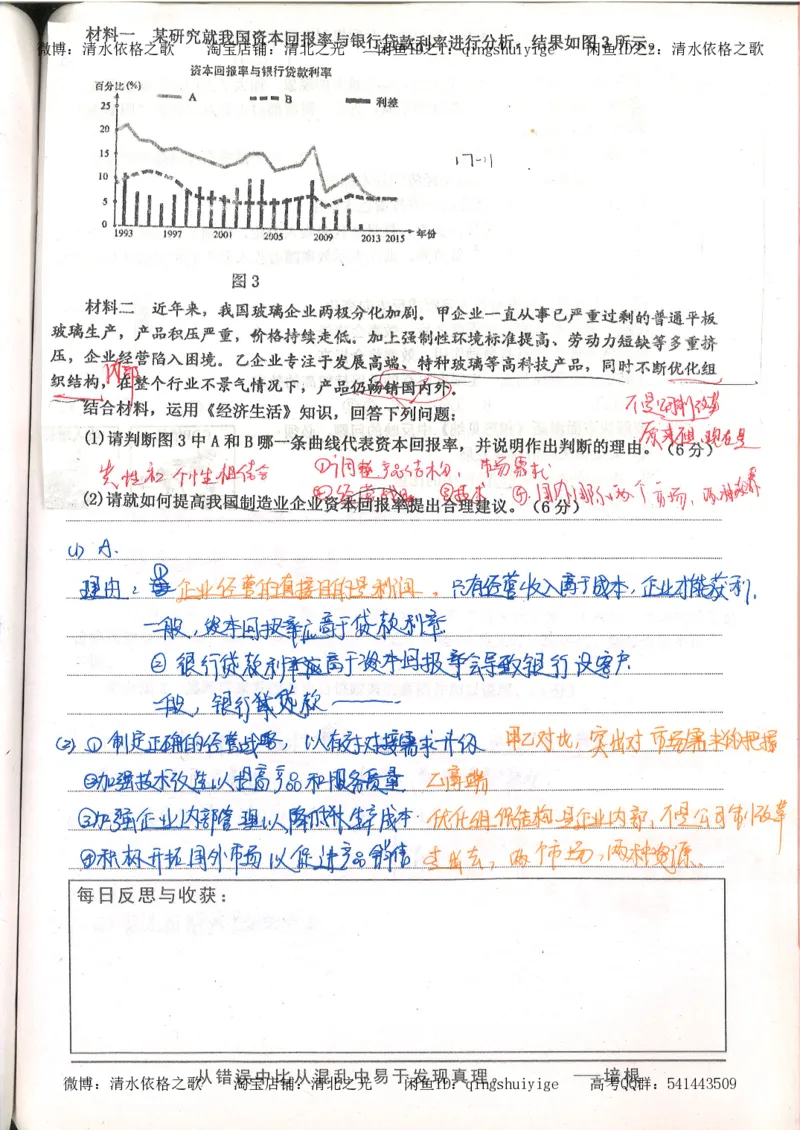 材料一　某研究就我国资本回报率与银行贷款利率进行分析，结果如图3所示。
微博：清水依格之歌　淘宝店铺：清北之光　闲鱼ID之1：qingshuiyige　闲鱼ID之2：清水依格之歌
资本回报率与银行贷款利率
百分比(%)
A　B　利差
25
20
15
10
5
0
17-11
1993　1997　2001　2005　2009　2013 2015　年份
图3
材料二　近年来，我国玻璃企业两极分化加剧。甲企业一直从事已严重过剩的普通平板
玻璃生产，产品积压严重，价格持续走低。加上强制性环境标准提高、劳动力短缺等多重挤
压，企业经营陷入困境。乙企业专注于发展高端、特种玻璃等高科技产品，同时不断优化组
织结构，在整个行业不景气情况下，产品仍畅销国内外。
内部
结合材料，运用《经济生活》知识，回答下列问题：
不是公司制改革
(1)请判断图3中A和B哪一条曲线代表资本回报率，并说明作出判断的理由。（6分）
共性和个性相结合　①调整产品结构　市场需求
②经营战略　③技术　⑤国内国际两个市场，两种资源
(2)请就如何提高我国制造业企业资本回报率提出合理建议。（6分）
(1) A.
理由：①企业经营的直接目的是利润。只有经营收入高于成本，企业才能获利，
一般，资本回报率应高于贷款利率
②银行贷款利率高于资本回报率会导致银行没客户
一般，银行贷款
(2)①制定正确的经营战略，以有效对接需求升级　甲乙对比，突出对市场需求的把握
②加强技术改造以提高产品和服务质量　乙高端
③加强企业内部管理以降低生产成本　优化组织结构是企业内部，不是公司制改革
④积极开拓国外市场以促进产品销售　走出去，两个市场，两种资源。
每日反思与收获：
从错误中比从混乱中易于发现真理。　——培根
微博：清水依格之歌　淘宝店铺：清北之光　闲鱼ID：qingshuiyige　高考QQ群：541443509